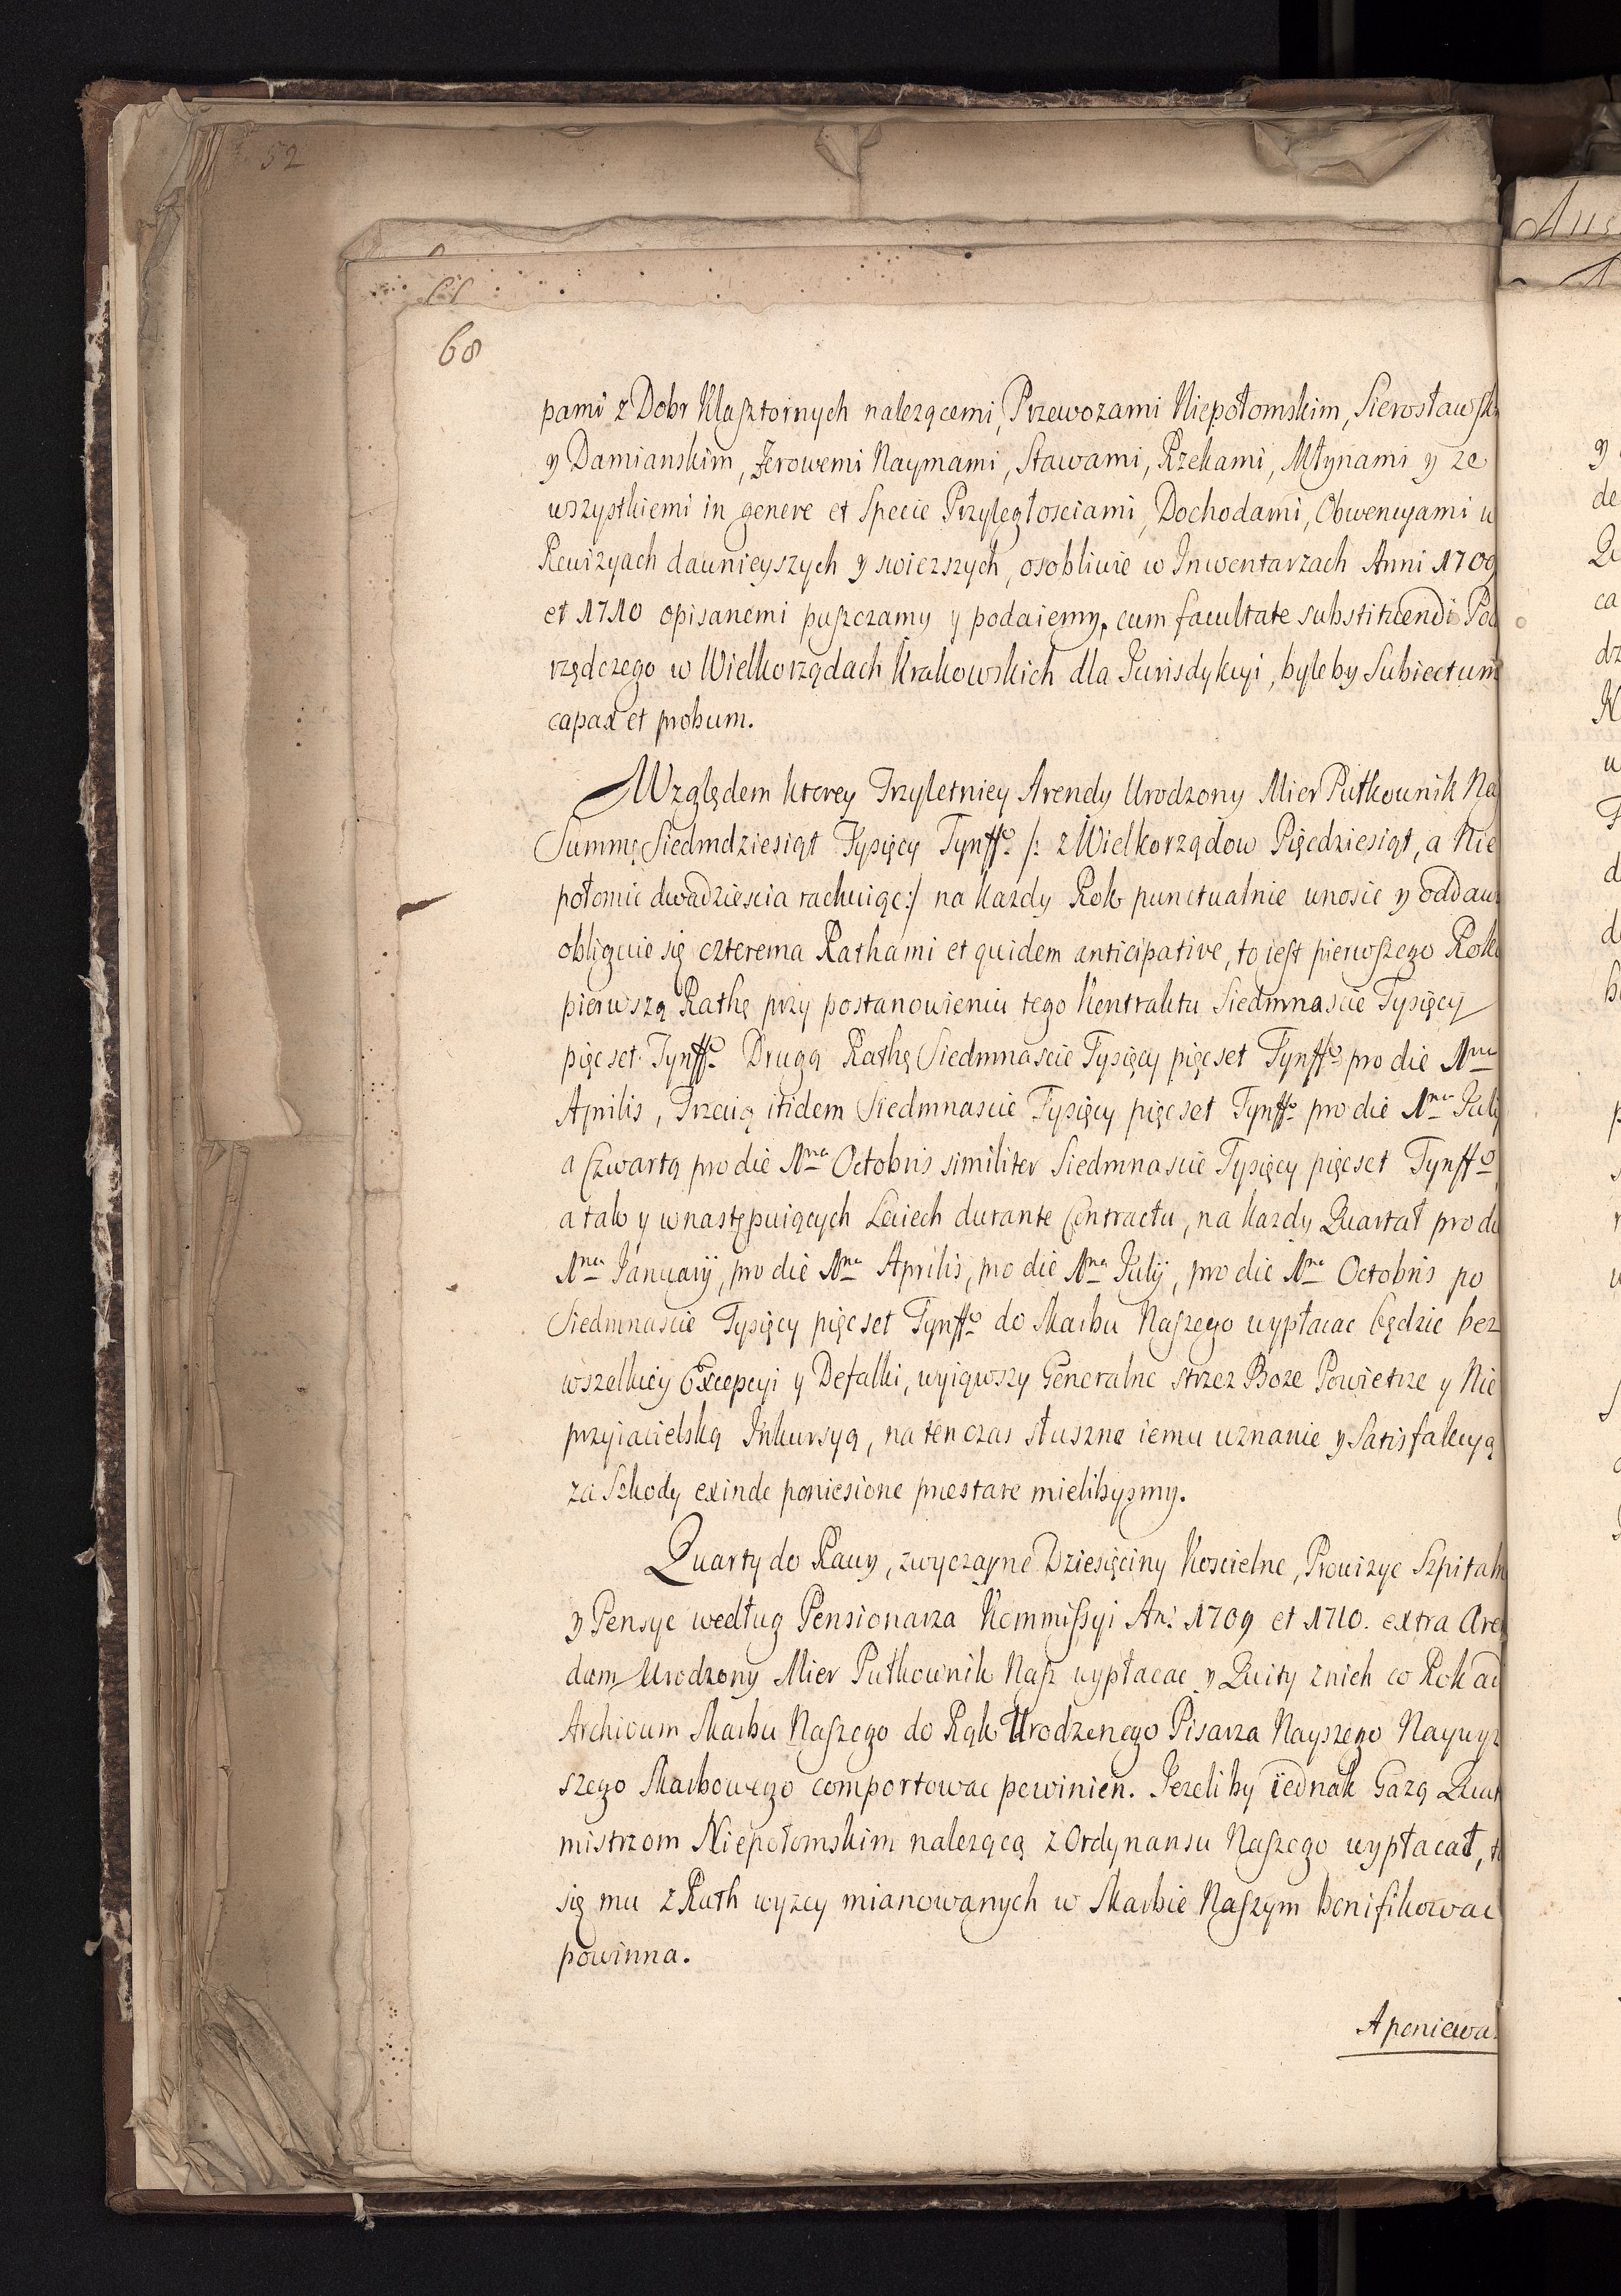 52
68
pami z Dobr Klasztornych nalezącemi, Przewozami Niepołomskim, Sierosławsk
y Damianskim, Jerowemi Naymami, Stawami, Rzekami, Młynami y ze
wszystkiemi in genere et Specie Przyległosciami, Dochodami, Obwencyami w
Rewizyach dawnieyszych y swiezszych, osobliwie w Inwentarzach Anni 1709
et 1710 opisanemi puszczamy y podaiemy, cum facultate substituendi Pod
rzędczego w Wielkorządach Krakowskich dla Jurisdykcyi, byleby Subiectum
capax et probum.
Względem ktorey Trzyletniey Arendy Urodzony Mier Pułkownik Na
Summę Siedmdziesiąt Tysięcy Tynffo /: z Wielkorządow Pięcdziesiąt, a Nie
połomic dwadziescia rachuiąc :/ na kazdy Rok punctualnie wnosic y oddaw
obliguie się czterema Rathami et quidem anticipative, to iest pierwszego Roku
pierwszą Rathę przy postanowieniu tego Kontraktu Siedmnascie Tysięcy
pięcset Tynffo Drugą Rathę Siedmnascie Tysięcy pięcset Tynffo pro die 1ma
Aprilis, Trzecią itidem Siedmnascie Tysięcy pięcset Tynffo pro die 1ma July
a Czwartą pro die 1ma Octobris similiter Siedmnascie Tysięcy pięcset Tynffo
a tak y w następuiących Leciech durante Contractu, na kazdy Quartał pro di
1ma January, pro die 1ma Aprilis, pro die 1ma July, pro die 1ma Octobris po
Siedmnascie Tysięcy pięcset Tynffo do Skarbu Naszego wypłacac będzie bez
wszelkiey Excepcyi y Defalki, wyiąwszy Generalne strzez Boze Powietrze y Nie
przyiacielską Inkursyą, na ten czas słuszne iemu uznanie y Satisfakcyą
za Szkody exinde poniesione praestare mielibysmy.
Quarty do Rawy, zwyczayne Dziesięciny Koscielne, Prowizye Szpitaln
y Pensye według Pensionarza Kommissyi An: 1709 et 1710. extra Aren
dam Urodzony Mier Pułkownik Nasz wypłacac y Quity z nich co Rok ad
Archivum Skarbu Naszego do Rąk Urodzonego Pisarza Naszego Naywyz
szego Skarbowego comportowac powinien. Jezeliby iednak Gazą Quat
mistrzom Niepołomskim nalezącą z Ordynansu Naszego wypłacał, t
się mu z Rath wyzey mianowanych w Skarbie Naszym bonifikowac
powinna.
A poniewa